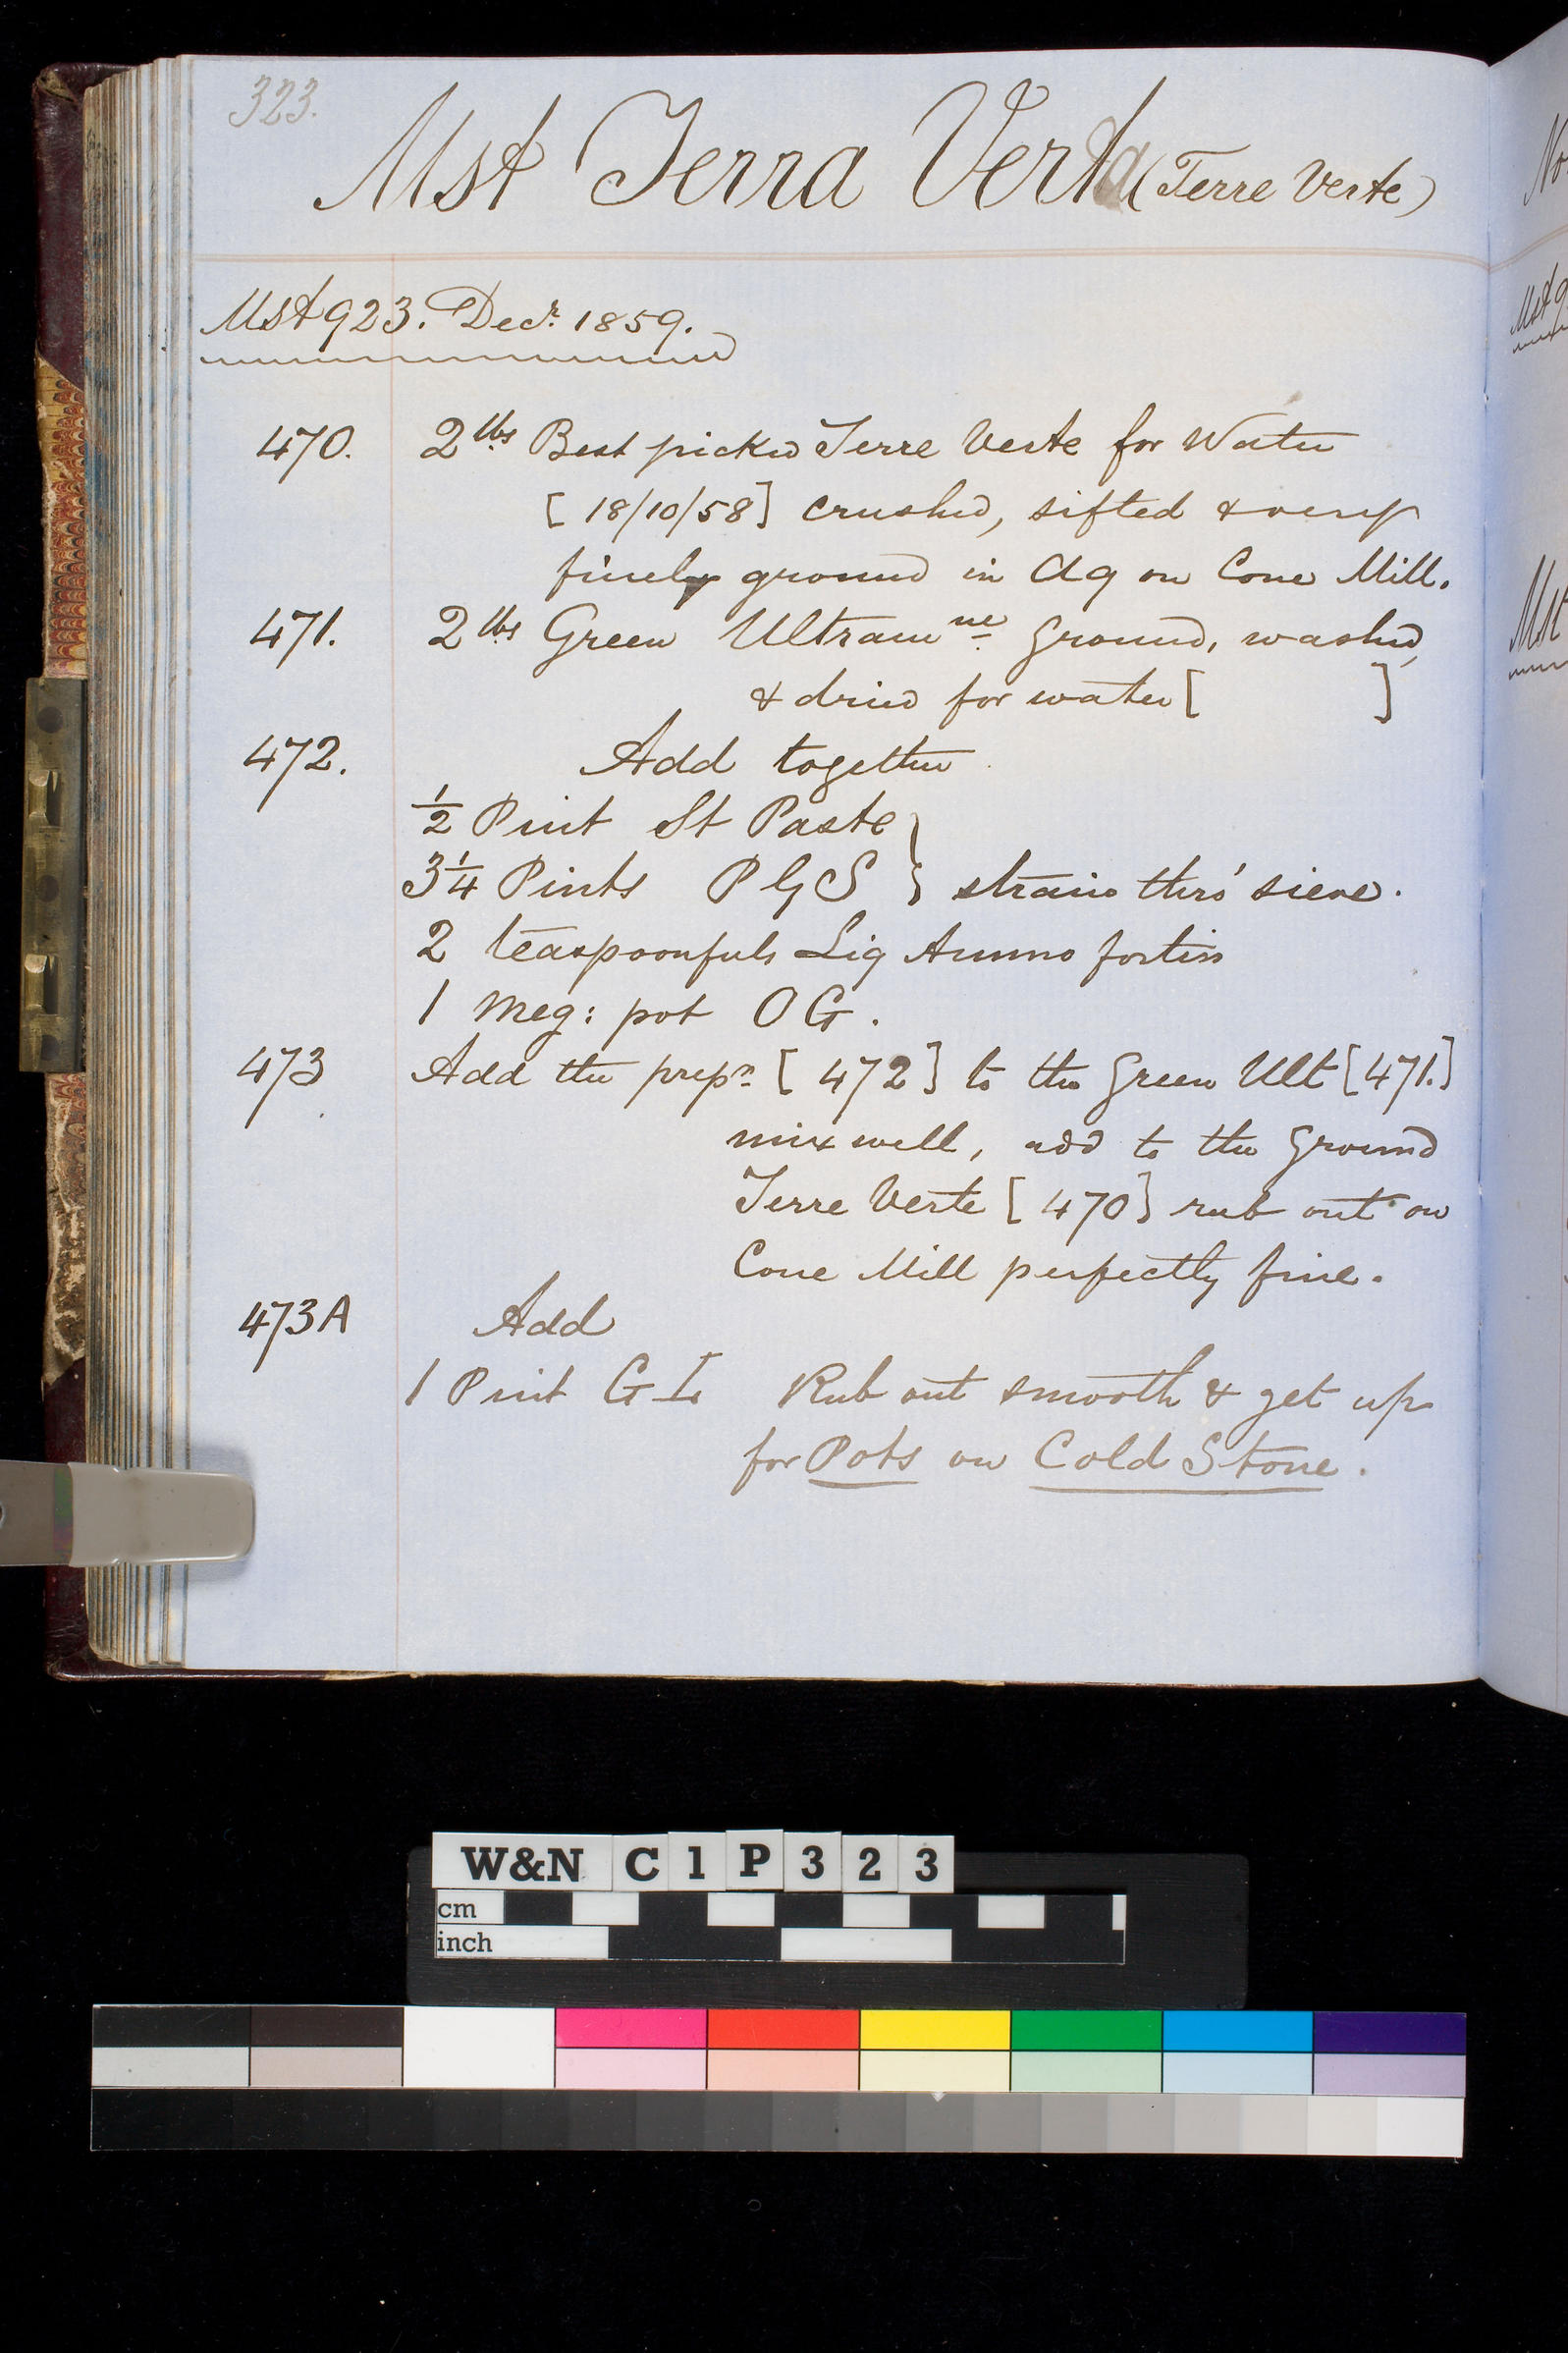 323.
Mst Terra Verta (Terre Verte)
Mst 923. Decr. 1859.
470. 2 lbs Best picked Terre Verte for Water
[18/10/58] crushed, sifted & very
finely ground in Aq on Cone Mill.
471. 2 lbs Green Ultramne Ground, washed,
& dried for water [ ]
472. Add together
1/2 Pint St Paste }
3 1/4 Pints P G S } strain thro' sieve.
2 teaspoonfuls Liq Ammo fortiss
1 Meg: pot O G.
473 Add the prepn [472] to the Green Ult [471.]
mix well, add to the Ground
Terre Verte [470] rub out on
Cone Mill perfectly fine.
473A Add
1 Pint G I Rub out smooth & get up
for Pots on Cold Stone.
W&N C1P323
cm
inch